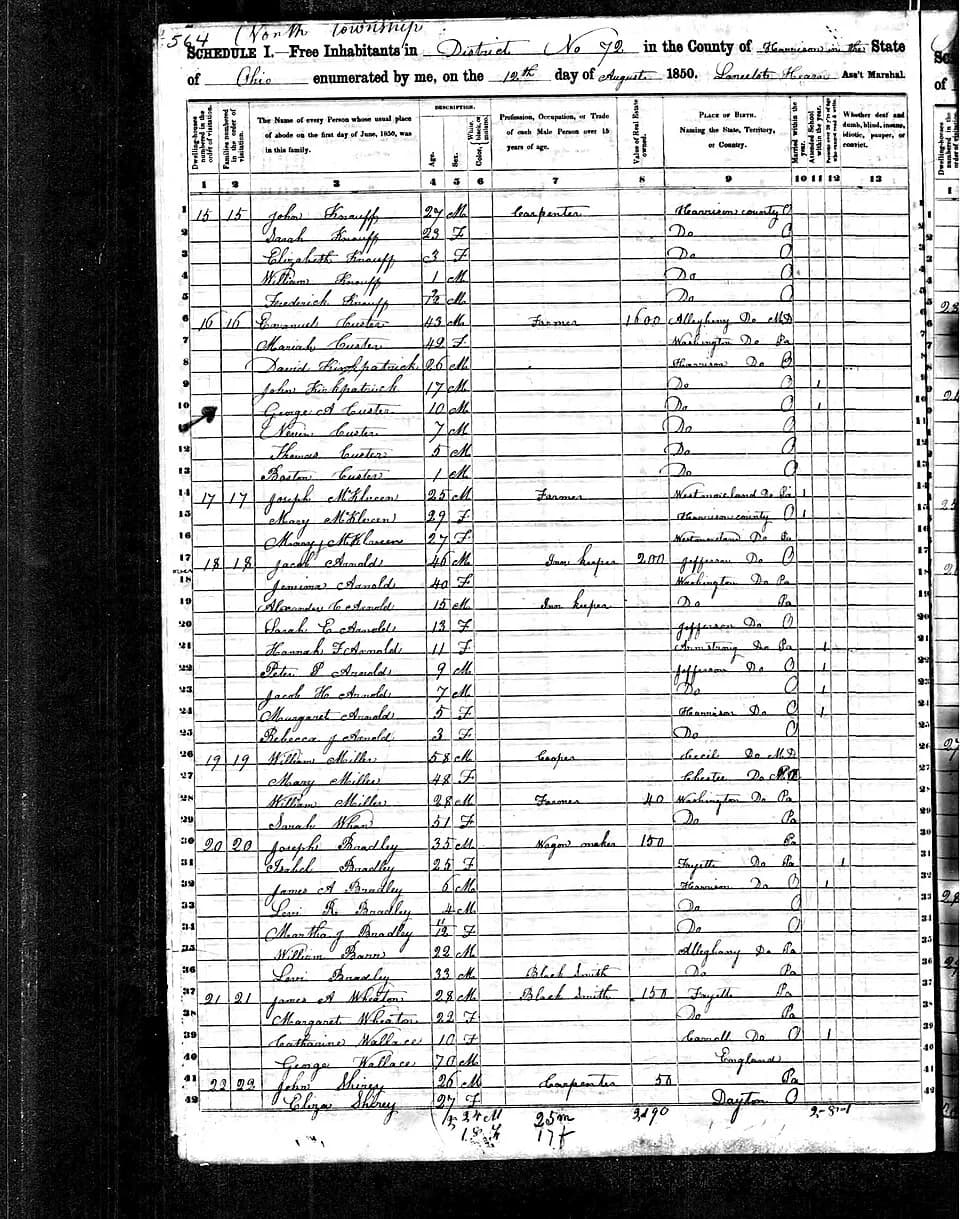 564 (North Township
SCHEDULE I.—Free Inhabitants in District No 72 in the County of Harrison in the State
of Ohio enumerated by me, on the 12th day of August 1850. Lancelote Hearn Ass't Marshal.
Dwelling-houses numbered in the order of visitation. Families numbered in the order of visitation. The Name of every Person whose usual place of abode on the first day of June, 1850, was in this family. DESCRIPTION. Age. Sex. Color, White, black, or mulatto. Profession, Occupation, or Trade of each Male Person over 15 years of age. Value of Real Estate owned. PLACE OF BIRTH. Naming the State, Territory, or Country. Married within the year. Attended School within the year. Persons over 20 y'rs of age who cannot read & write. Whether deaf and dumb, blind, insane, idiotic, pauper, or convict.
1 2 3 4 5 6 7 8 9 10 11 12 13
1 15 15 John Knauff 27 M Carpenter Harrison county O
2 Sarah Knauff 23 F Do O
3 Elizabeth Knauff 3 F Do O
4 William Knauff 1 M Do O
5 Frederick Knauff 2/12 M Do O
6 16 16 Emanuel Custer 43 M Farmer 1600 Allegheny Do MD
7 Mariah Custer 42 F Washington Do Pa
8 David Kirkpatrick 26 M Harrison Do O
9 John Kirkpatrick 17 M Do O 1
10 George A Custer 10 M Do O 1
11 Nevin Custer 7 M Do O
12 Thomas Custer 5 M Do O
13 Boston Custer 1 M Do O
14 17 17 Joseph McKlveen 25 M Farmer Westmoreland Do Pa 1
15 Mary McKlveen 29 F Harrison county O 1
16 Mary J McKlveen 27 F Westmoreland Do Pa
17 18 18 Jacob Arnold 46 M Inn keeper 200 Jefferson Do O
18 Jemima Arnold 40 F Washington Do Pa
19 Alexander C Arnold 15 M Inn keeper Do Pa
20 Sarah E Arnold 13 F Jefferson Do O
21 Hannah F Arnold 11 F Armstrong Do Pa 1
22 Peter P Arnold 9 M Jefferson Do O 1
23 Jacob H Arnold 7 M Do O 1
24 Maurgaret Arnold 5 F Harrison Do O 1
25 Rebecca J Arnold 3 F Do O
26 19 19 William Miller 58 M Cooper Cecil Do MD
27 Mary Miller 48 F Chester Do
28 William Miller 28 M Farmer 40 Washington Do Pa
29 Sarah 51 F Do Pa
30 20 20 Joseph Bradley 35 M Wagon maker 150 Pa
31 Isabel Bradley 25 F Fayette Do Pa 1
32 James A Bradley 6 M Harrison Do O 1
33 Levi R. Bradley 4 M Do O
34 Martha J Bradley 11/12 F Do O
35 William Barr 22 M Alleghany Do Pa
36 Levi Bradley 33 M Black Smith Do Pa
37 21 21 James A Wheaton 28 M Black Smith 150 Fayette Pa
38 Margaret Wheaton 22 F Do Pa
39 Catharine Wallace 10 F Carroll Do O 1
40 George Wallace 70 M England
41 22 22 John Shirey 26 M Carpenter 50 Pa
42 Eliza Shirey 27 F Dayton O
24 M 25 m 2190 2-8-1
18 F 17 f